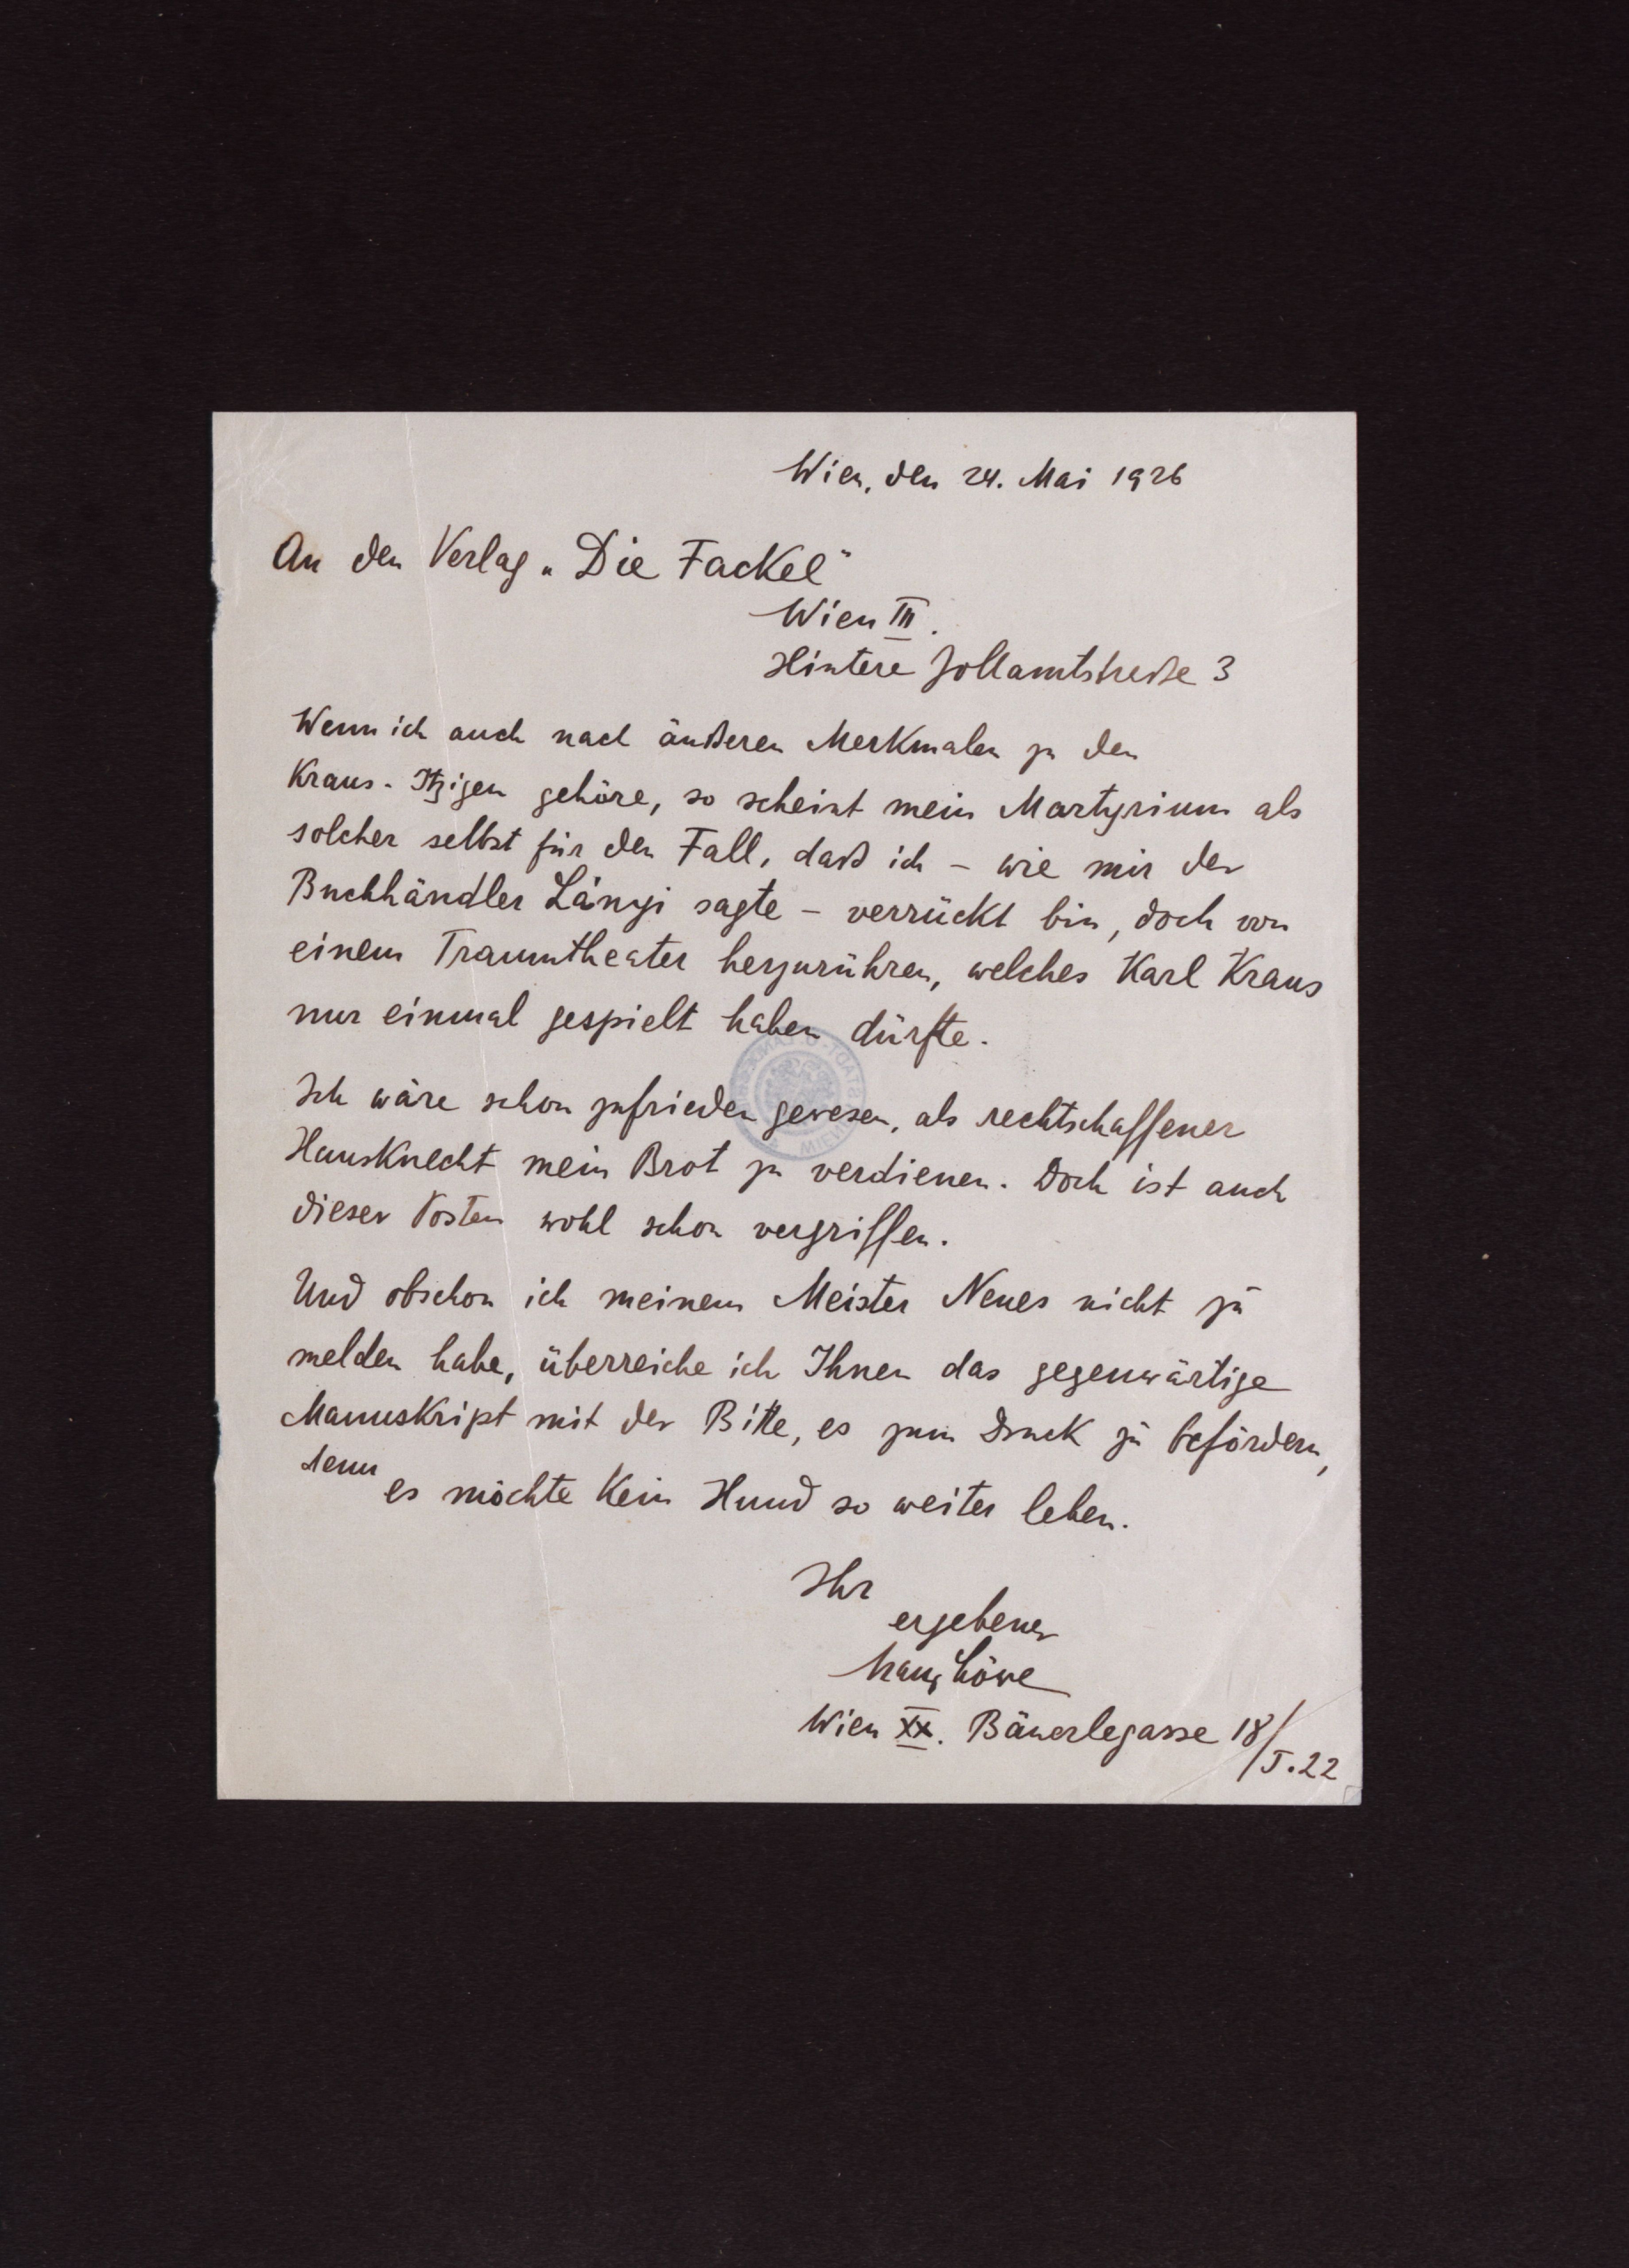 Wien, den 24. Mai 1926
An den Verlag „Die Fackel"
Wien III.
Hintere Zollamtstraße 3
Wenn ich auch nach äußeren Merkmalen zu den
Kraus-Itzigen gehöre, so scheint mein Martyrium als
solcher selbst für den Fall, daß ich – wie mir der
Buchhändler Lányi sagte – verrückt bin, doch von
einem Traumtheater herzurühren, welches Karl Kraus
nur einmal gespielt haben dürfte.
Ich wäre schon zufrieden gewesen, als rechtschaffener
Hausknecht mein Brot zu verdienen. Doch ist auch
dieser Posten wohl schon vergriffen.
Und obschon ich meinem Meister Neues nicht zu
melden habe, überreiche ich Ihnen das gegenwärtige
Manuskript mit der Bitte, es zum Druck zu befördern,
denn
es möchte kein Hund so weiter leben.
Ihr
ergebener
Löwe
Wien XX. Bäuerlegasse 18/
I.22